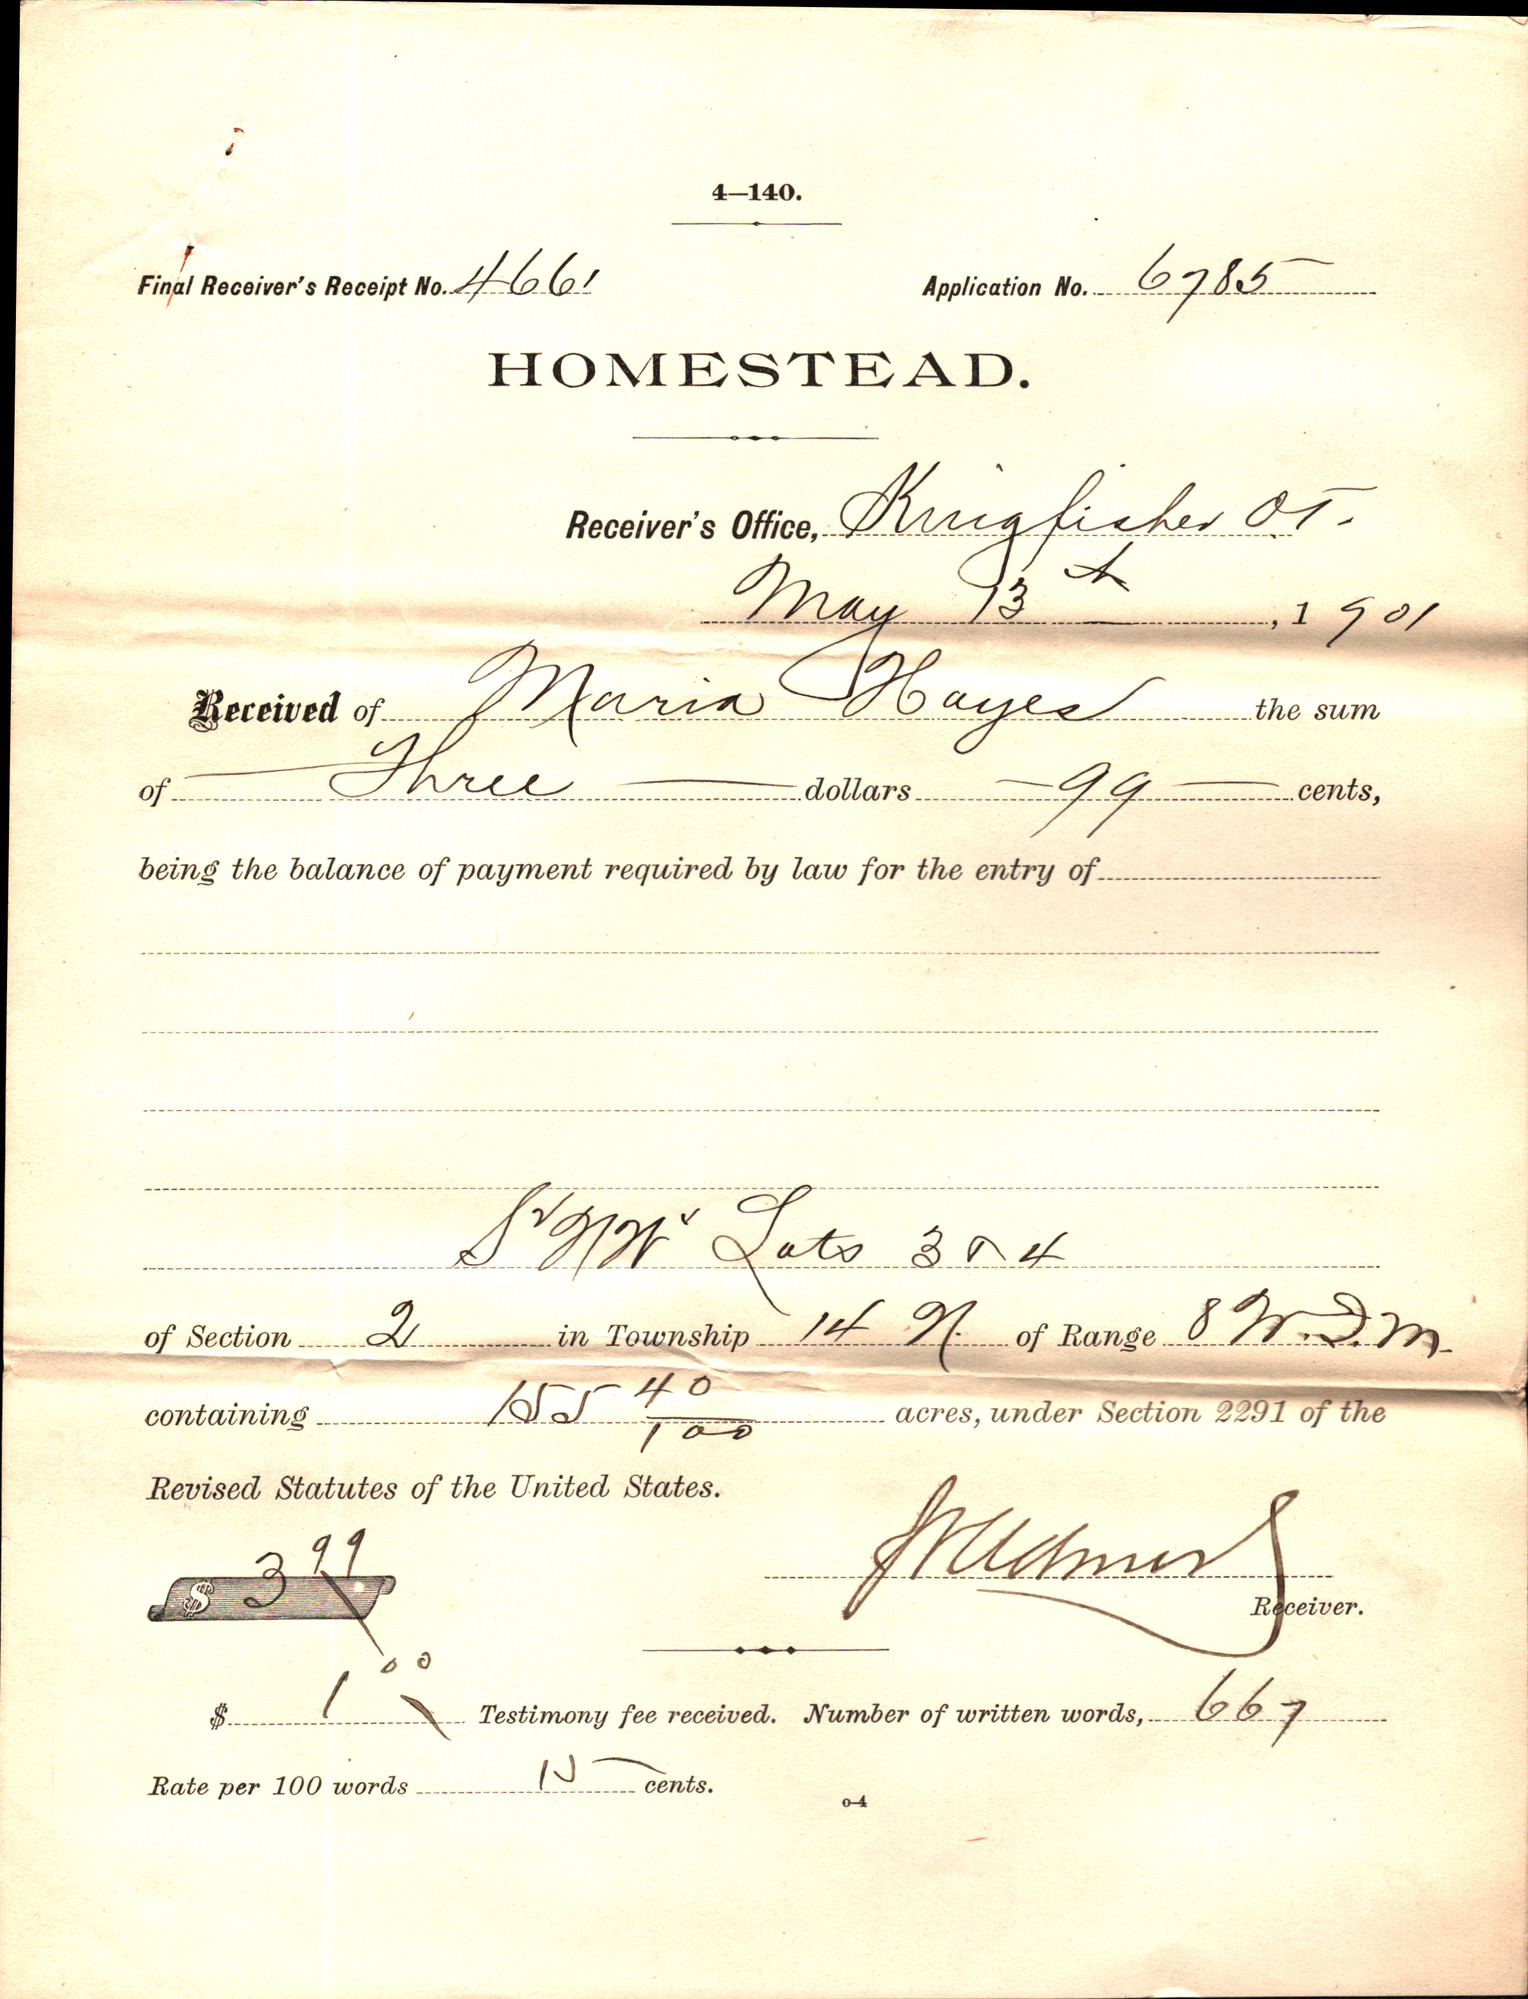 4—140.
Final Receiver's Receipt No. 4661 Application No. 6785
HOMESTEAD.
Receiver's Office, Kingfisher O.T.
May 13th, 1901
Received of Maria Hayes the sum
of Three dollars 99 cents,
being the balance of payment required by law for the entry of
Lots 3 & 4
of Section 2 in Township 14 N. of Range 8 W.I.M.
containing 155 40/100 acres, under Section 2291 of the
Revised Statutes of the United States.
$ 3 99
Receiver.
$ 1 00 Testimony fee received. Number of written words, 667
Rate per 100 words 15 cents.
o-4